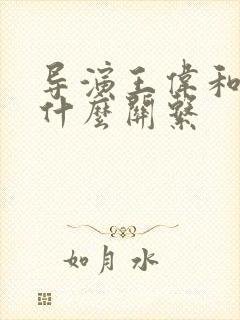 导演王偉和
什麼關繫
如月水